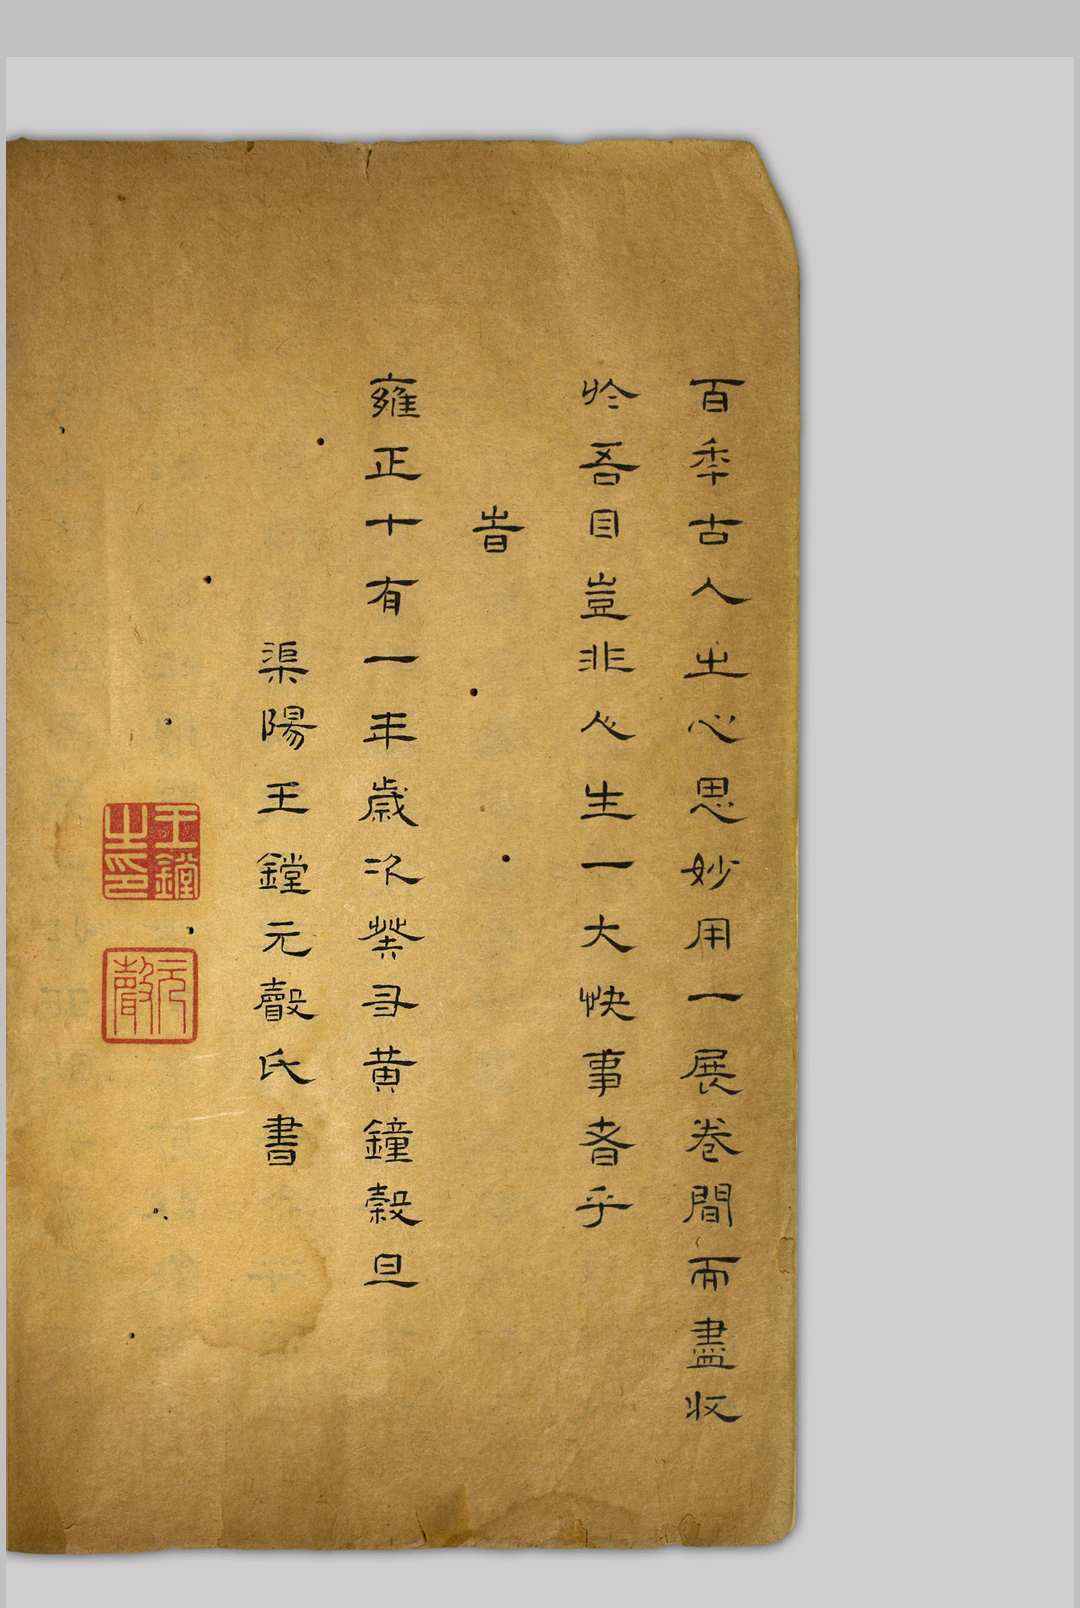 百秊古人之心思妙用一展卷間而盡收
於吾目豈非心生一大快事者乎
旹
雍正十有一年歲次癸丑黃鐘穀旦
渠陽王鏜元聲氏書
王鏜之印
元聲